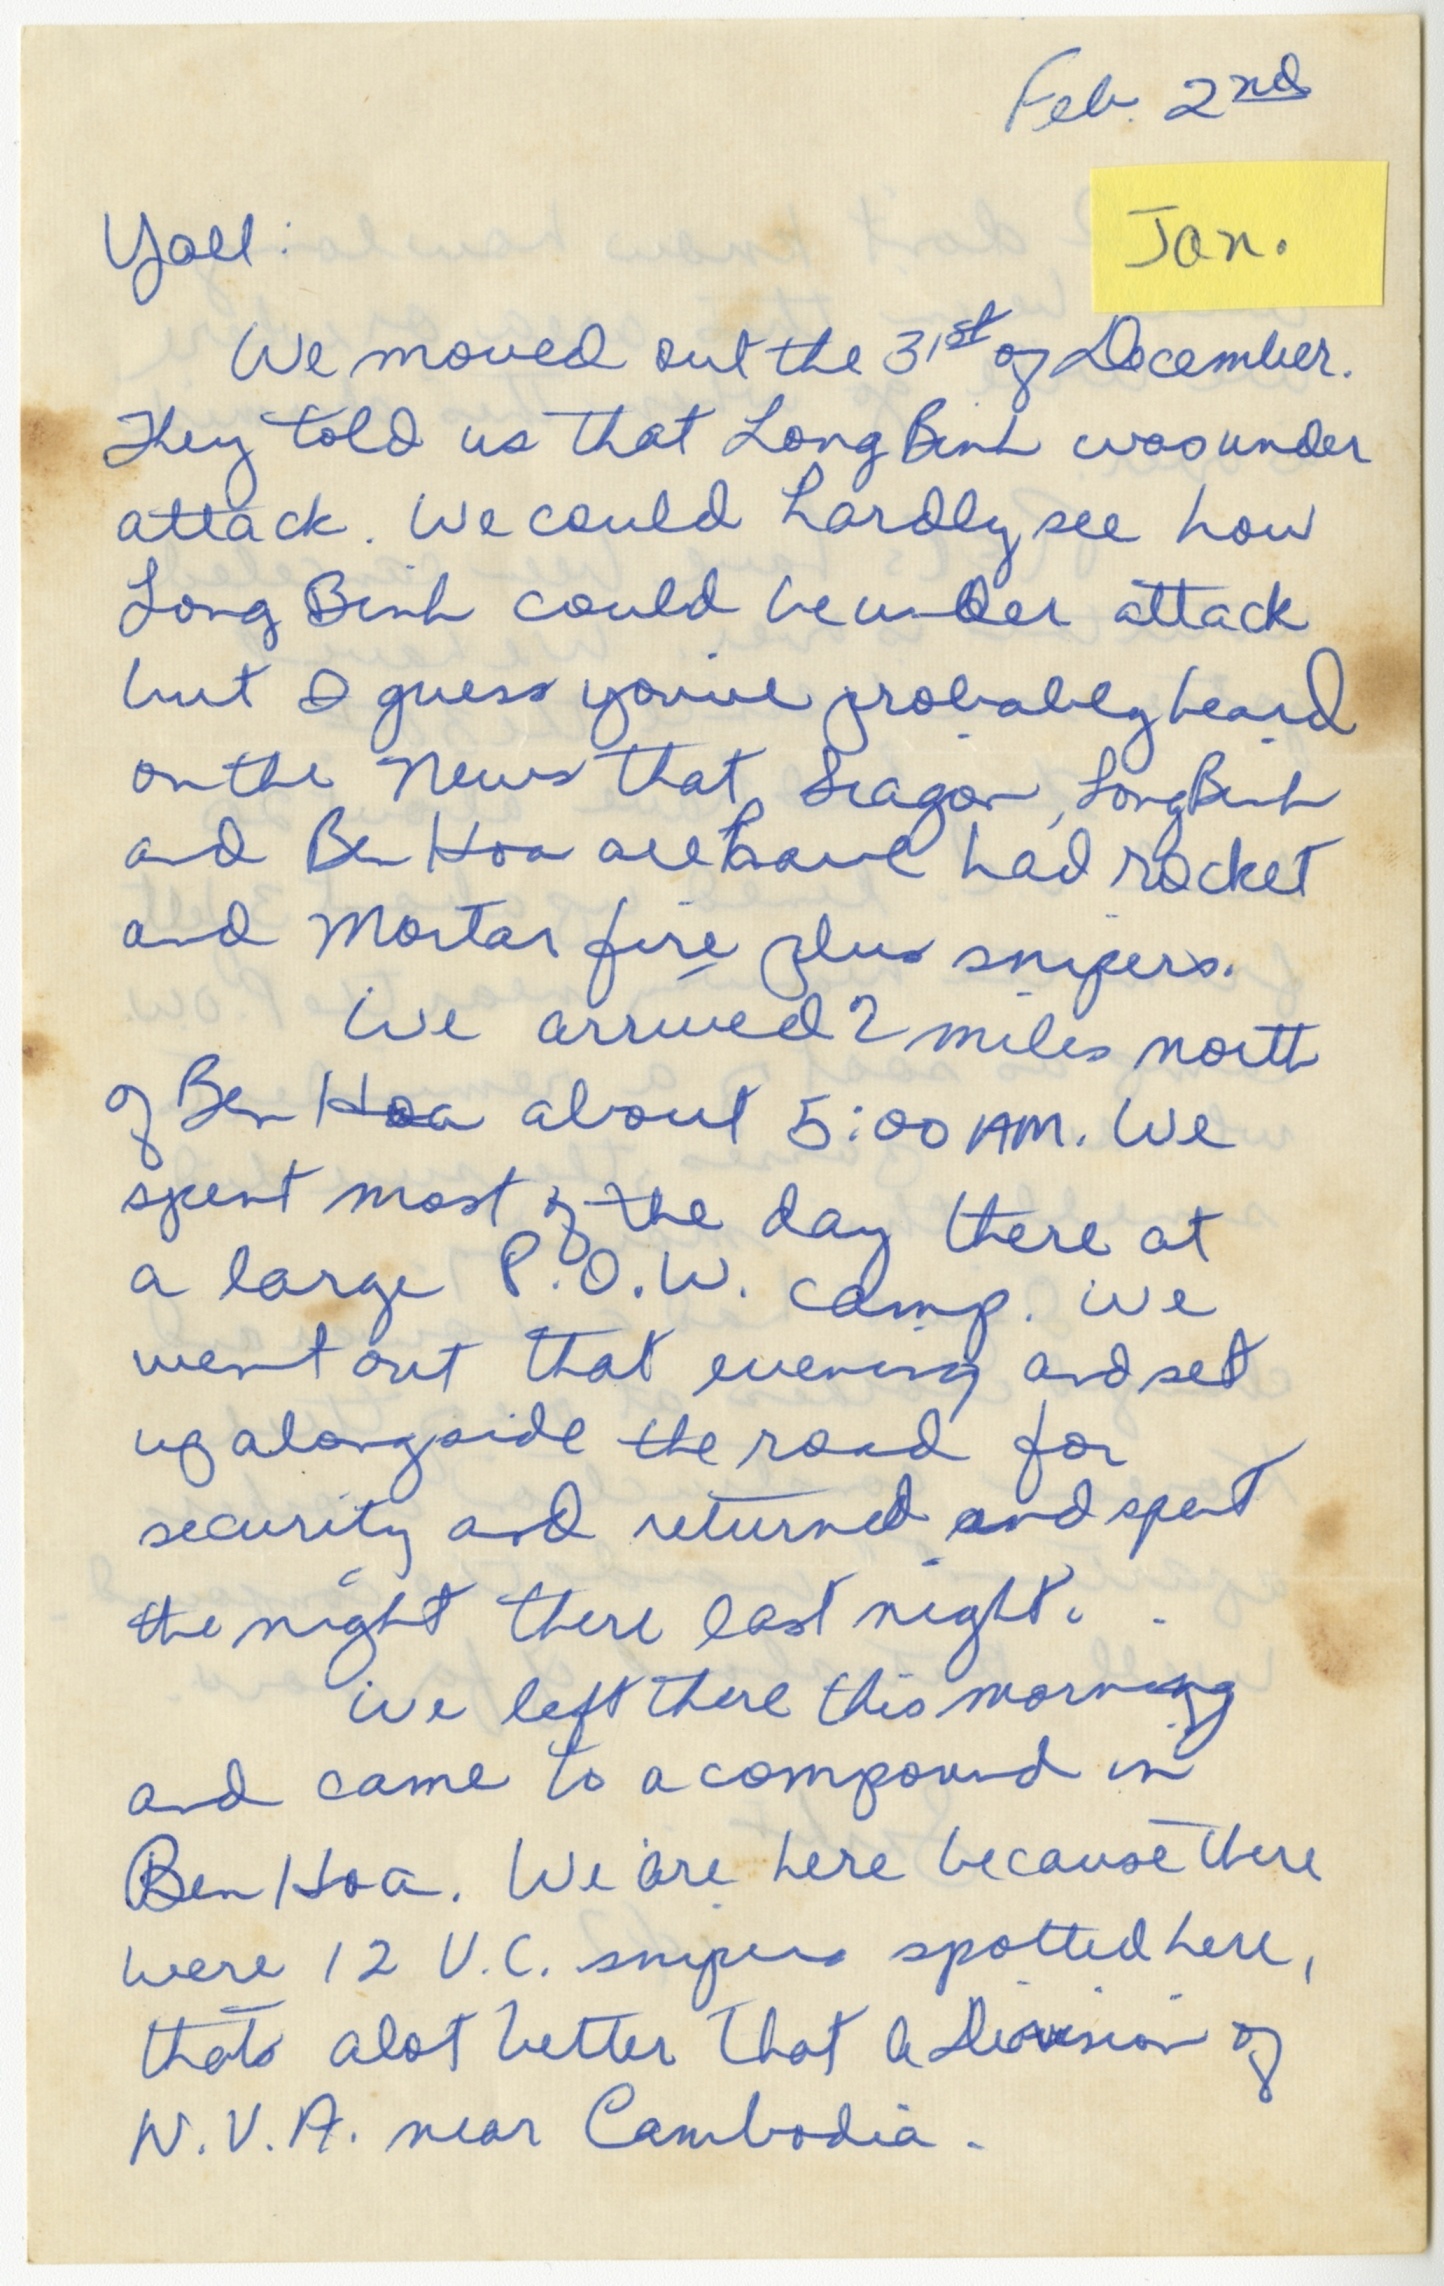 Feb. 2nd
Jan.
Yall:
We moved out the 31st of December.
They told us that Long Binh was under
attack. We could hardly see how
Long Binh could be under attack
but I guess you've probably heard
on the News that, Siagon, Long Binh
and Ben Hoa all have had rocket
and Mortar fire plus snipers.
We arrived 2 miles north
of Ben Hoa about 5:00 AM. We
spent most of the day there at
a large P.O.W. camp. We
went out that evening and set
up alongside the road for
security and returned and spent
the night there last night.
We left there this morning
and came to a compound in
Ben Hoa. We are here because there
were 12 V.C. snipers spotted here,
thats alot better that a Division of
N.V.A. near Cambodia.